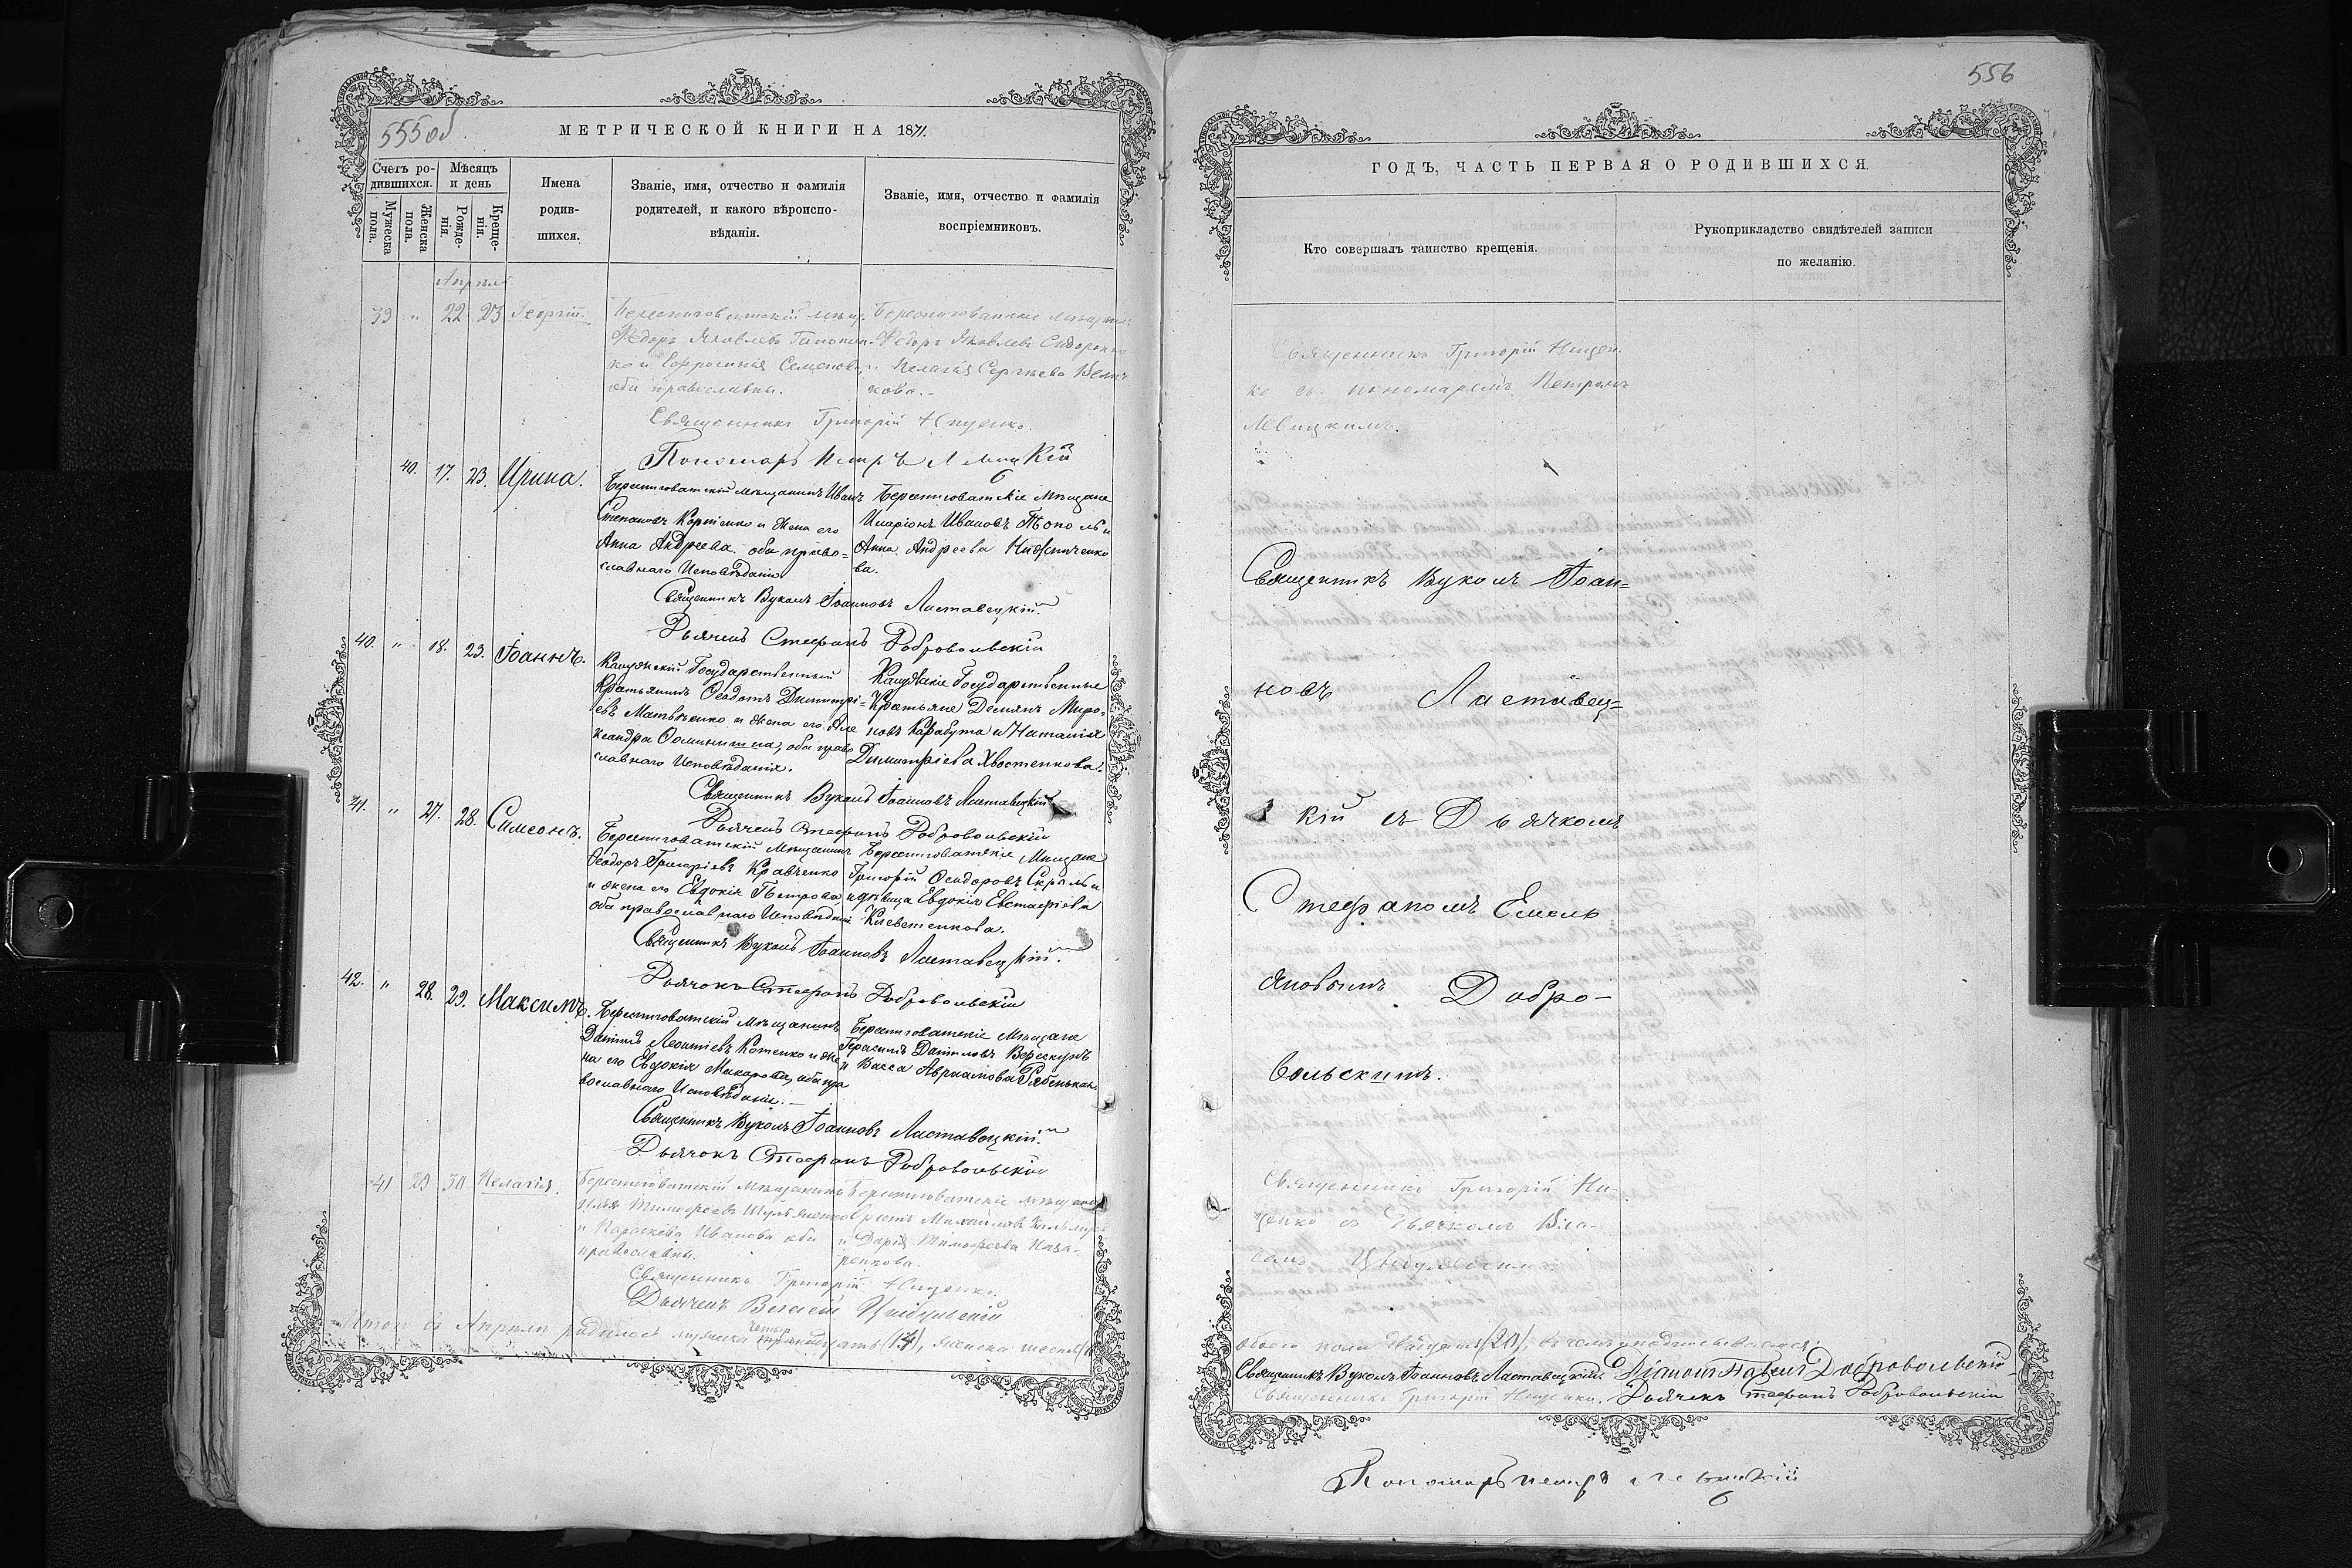 555 об.
МЕТРИЧЕСКОЙ КНИГИ НА 1871.
Счетъ ро-
дившихся.
Мужеска пола.
Женска пола.
Мѣсяцъ
и день
Рожде-
нія.
Креще-
нія.
Имена
родив-
шихся.
Званіе, имя, отчество и фамилія
родителей, и какого вѣроиспо-
вѣданія.
Званіе, имя, отчество и фамилія
воспріемниковъ.
Апрѣль
39 " 22 23 Георгій.
Берестоватскій
Федоръ Яковлевъ
Семенова
оба православны.
Берестоватскіе
Федоръ Яковлевъ Сидоренко
и Пелагія Сергѣева
кова.
Священникъ Григорій Нищенко.
Пономарь Петръ Левицкій
40. 17. 23. Ирина.
Берестоватскій мѣщанинъ Иванъ
Степановъ и жена его
Анна Андреева оба право=
славнаго Исповѣданія
Берестоватскіе Мѣщане
Иларіонъ Ивановъ и
Анна Андреева
ва.
Священникъ Вуколъ Іоанновъ Ластавецкій.
Дьячекъ Стефанъ Добровольскій
40. " 18. 23. Іоаннъ.
Государственный
Крестьянинъ Ѳеодотъ Димитрі=
евъ Матвѣенко и жена его Але
ксандра Ѳоминична, оба право
славнаго Исповѣданія.
Государственные
Крестьяне Демянъ Миро=
новъ Карабута и Наталія
Димитріева Хвостенкова.
Священникъ Вуколъ Іоанновъ Ластавецкій
Дьячекъ Стефанъ Добровольскій
41. " 27. 28. Симеонъ.
Берестоватскій Мѣщанинъ
Ѳеодоръ Григорьевъ Кравченко
и жена его Евдокія Петрова
оба православнаго Исповѣданія
Берестоватскіе Мѣщане
Григорій Ѳеодоровъ и
дѣвица Евдокія Евстафіева
Священникъ Вуколъ Іоанновъ Ластавецкій.
Дьячокъ Стефанъ Добровольскій
42. " 28. 29. Максимъ.
Берестоватскій Мѣщанинъ
Даніилъ Леонтіевъ Котенко и же
на его Евдокія Макарова, оба пра
вославнаго Исповѣданія.
Берестоватскіе Мѣщане
Герасимъ Даниловъ Верескунъ
и Васса Авраамова
Священникъ Вуколъ Іоанновъ Ластавецкій.
Дьячокъ Стефанъ Добровольскій
41 29 30 Пелагія.
Берестоватскій Мѣщанинъ
Илья Тимофеевъ
и Параскева Иванова оба
православны.
Берестоватскіе мѣщане
и Дарія Тимофеева Наза-
ренкова.
Священникъ Григорій Нищенко.
Дьячекъ
Итого въ Апрѣлѣ родилось мужеска четыр надцать (14), женска шесть
556
ГОДЪ, ЧАСТЬ ПЕРВАЯ О РОДИВШИХСЯ.
Кто совершалъ таинство крещенія.
Рукоприкладство свидѣтелей записи
по желанію.
Священникъ Григорій Нищен-
ко съ пономаремъ Петромъ
Левицкимъ.
Священникъ Вуколъ Іоан=
новъ Ластавец=
кій съ Дьячкомъ
Стефаномъ Емель
яновымъ Добро-
вольскимъ.
Священникъ Григорій Ни-
щенко съ Дьячкомъ Вла-
обоего пола двадцать (20), въ чемъ подписываемся
Священникъ Вуколъ Іоанновъ Ластавецкій. Діаконъ Павелъ Добровольскій
Священникъ Григорій Нищенко. Дьячекъ Стефанъ Добровольскій
Пономарь Петръ Левицкій